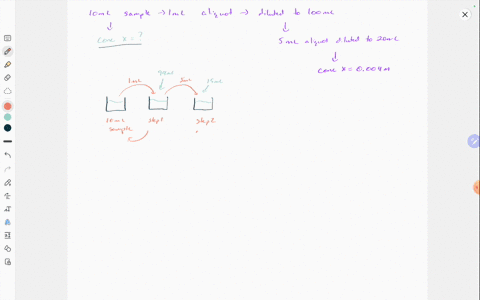 10mL sample → 1mL aliquot → diluted to 100mL
conc x = ?
5mL aliquot diluted to 20mL
conc x = 0.004M
99mL
1mL
5mL
15mL
10mL sample
step 1
step 2